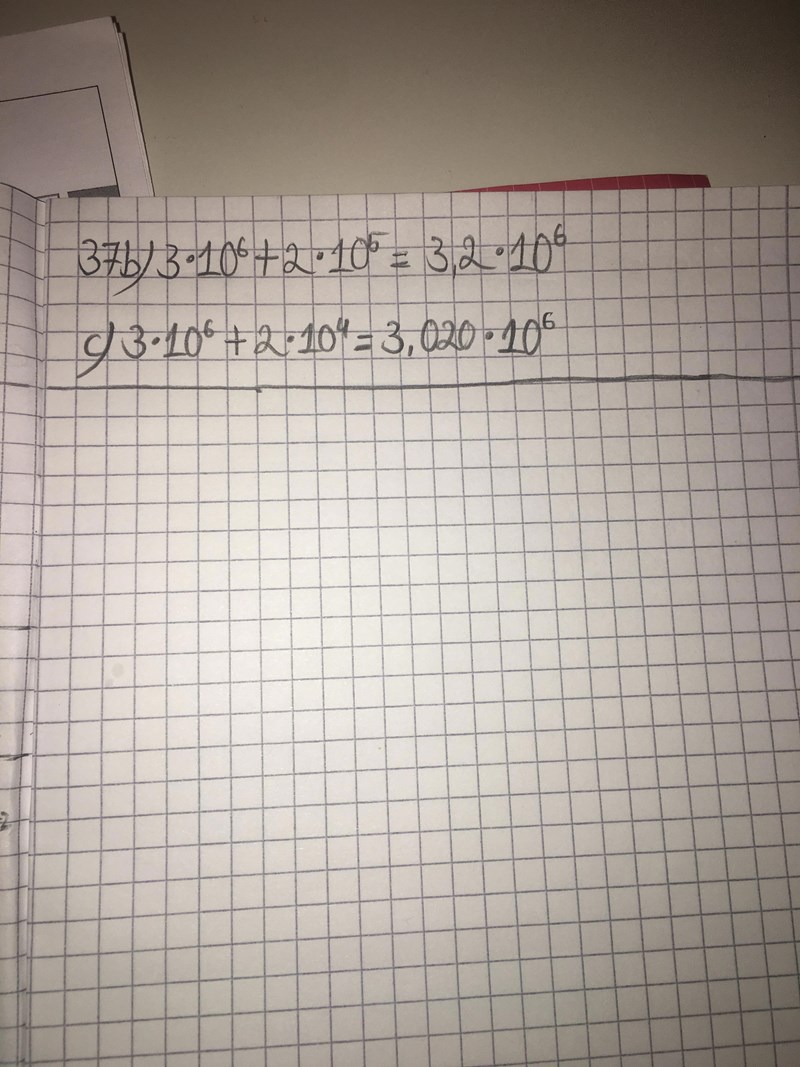 37b) 3·10⁶ + 2·10⁵ = 3,2·10⁶
c) 3·10⁶ + 2·10⁴ = 3,020·10⁶